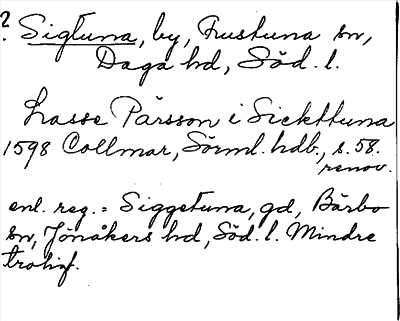 ?. Sigtuna, by, Frustuna sn,
Daga hd, Söd. l.
Lasse Pärsson i Sickttuna
1598 Collmar, Sörml. hdb., s. 58.
renov.
enl. reg. = Siggetuna, gd, Bärbo
sn, Jönåkers hd, Söd. l. Mindre
troligt.